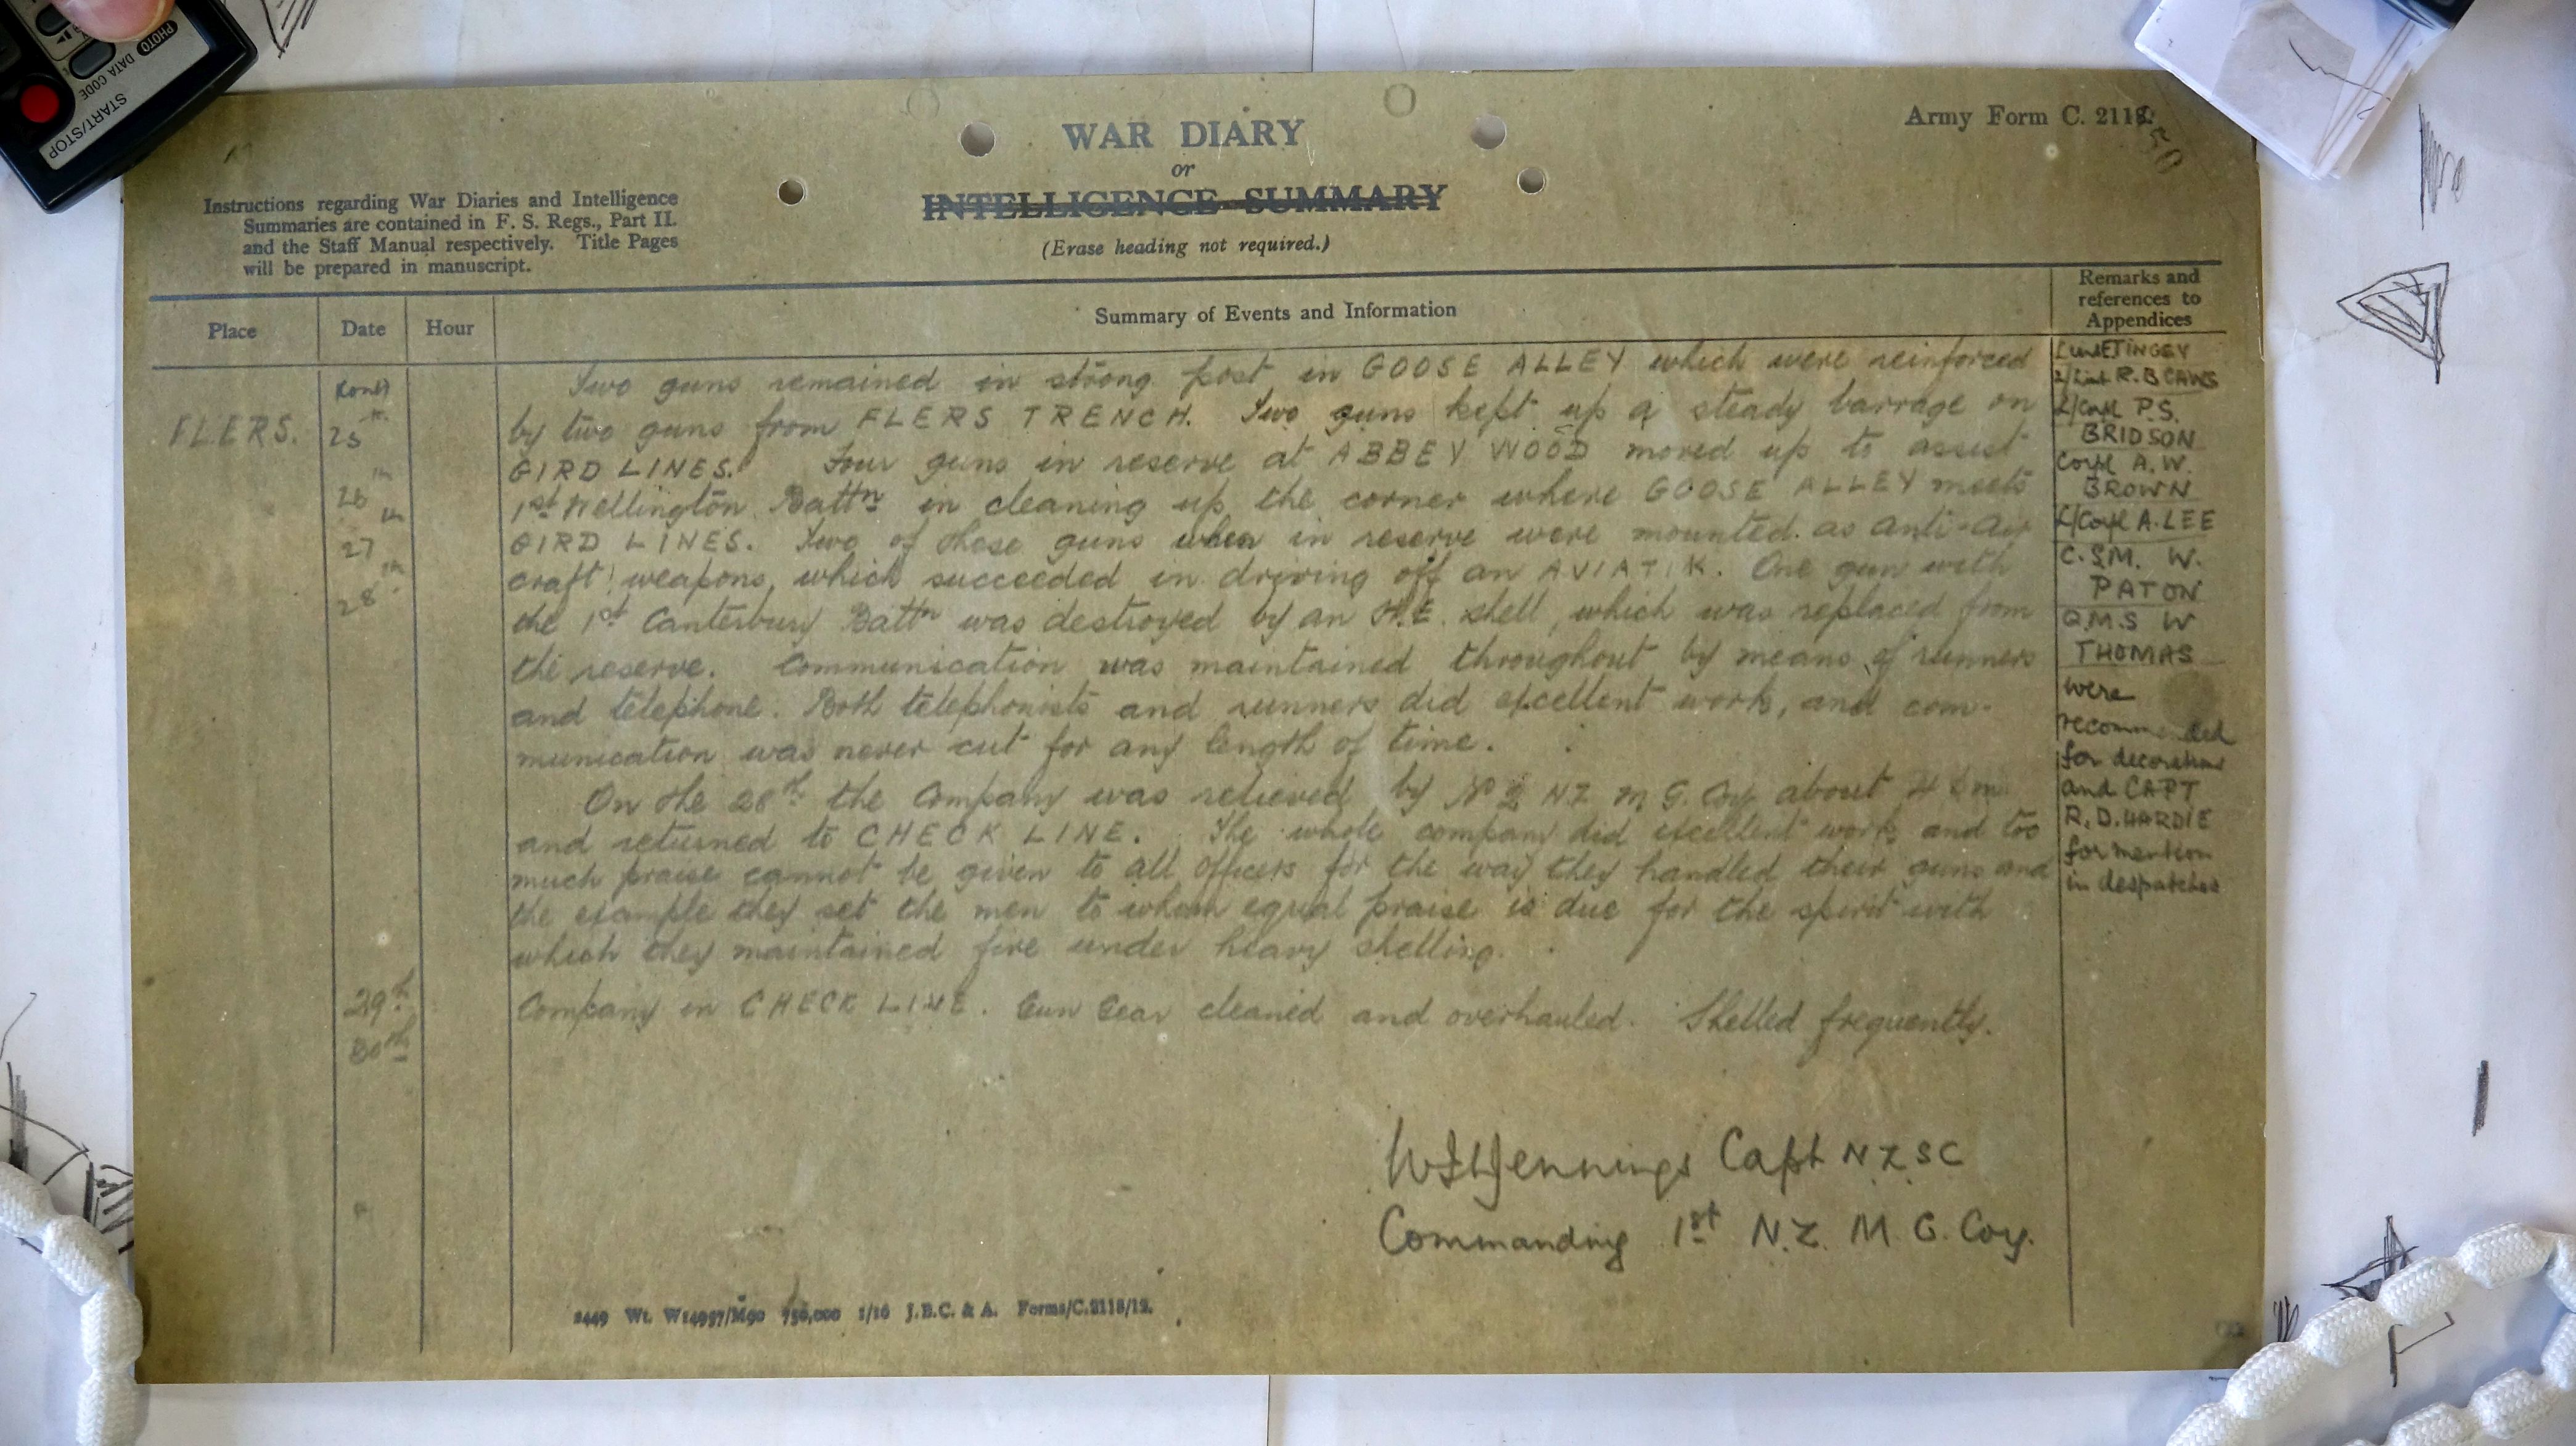 PHOTO
DATA CODE
START/STOP
Army Form C. 2118.
WAR DIARY
or
INTELLIGENCE SUMMARY
(Erase heading not required.)
Instructions regarding War Diaries and Intelligence
Summaries are contained in F. S. Regs., Part II.
and the Staff Manual respectively. Title Pages
will be prepared in manuscript.
Place
Date
Hour
Summary of Events and Information
Remarks and
references to
Appendices
FLERS.
(Cont)
25th
26th
27th
28th
Two guns remained in strong post in GOOSE ALLEY which were reinforced
by two guns from FLERS TRENCH. Two guns kept up a steady barrage on
GIRD LINES. Four guns in reserve at ABBEY WOOD moved up to assist
1st Wellington Battn in cleaning up the corner where GOOSE ALLEY meets
GIRD LINES. Two of these guns when in reserve were mounted as anti-air
craft weapons, which succeeded in driving off an AVIATIK. One gun with
the 1st Canterbury Battn was destroyed by an H.E. shell, which was replaced from
the reserve. Communication was maintained throughout by means of runners
and telephone. Both telephonists and runners did excellent work, and com-
munication was never cut for any length of time.
On the 28th the Company was relieved by No 2 NZ M G. Coy about 4
and returned to CHECK LINE. The whole company did excellent work and too
much praise cannot be given to all officers for the way they handled their guns and
the example they set the men to whom equal praise is due for the spirit with
which they maintained fire under heavy shelling.
29th
30th
Company in CHECK LINE. Gun Gear cleaned and overhauled. Shelled frequently.
TINGEY
2/Lieut R.B CAWS
L/Corpl P.S.
BRIDSON
Corpl A.W.
BROWN
L/Corpl A.LEE
C.S.M. W.
PATON
Q.M.S W
THOMAS
were
recommended
for decoration
and CAPT
R.D.HARDIE
for mention
in despatches
Jennings Capt N.Z.S.C
Commanding 1st N.Z. M. G. Coy.
2449 Wt. W14957/M90 750,000 1/16 J.B.C. & A. Forms/C.2118/12.